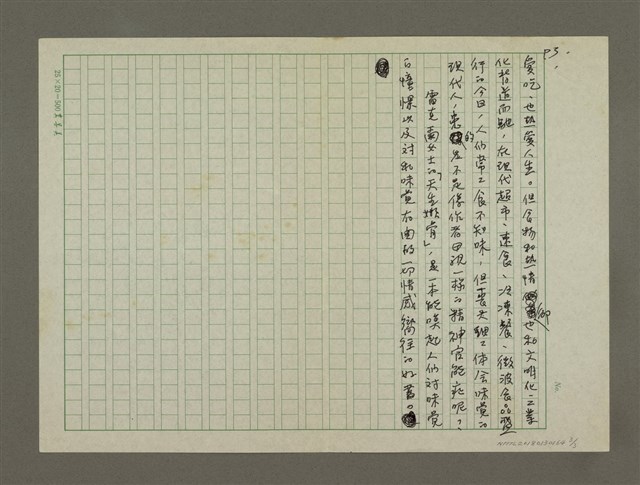 P3.
愛吃、也熱愛人生。但食物和熱情卻也和文明化工業
化背道而馳，在現代超市、速食、冷凍餐、微波食品盛
行的今日，人們常常食不知味，但喪失細細體會味覺的
現代人，患的豈不是像作者母親一樣的精神官能症呢？
雷克爾女士的「天生嫩骨」，是一本能喚起人們對味覺
的憧憬以及對和味覺有關的一切情感嚮往的好書。
25×20=500